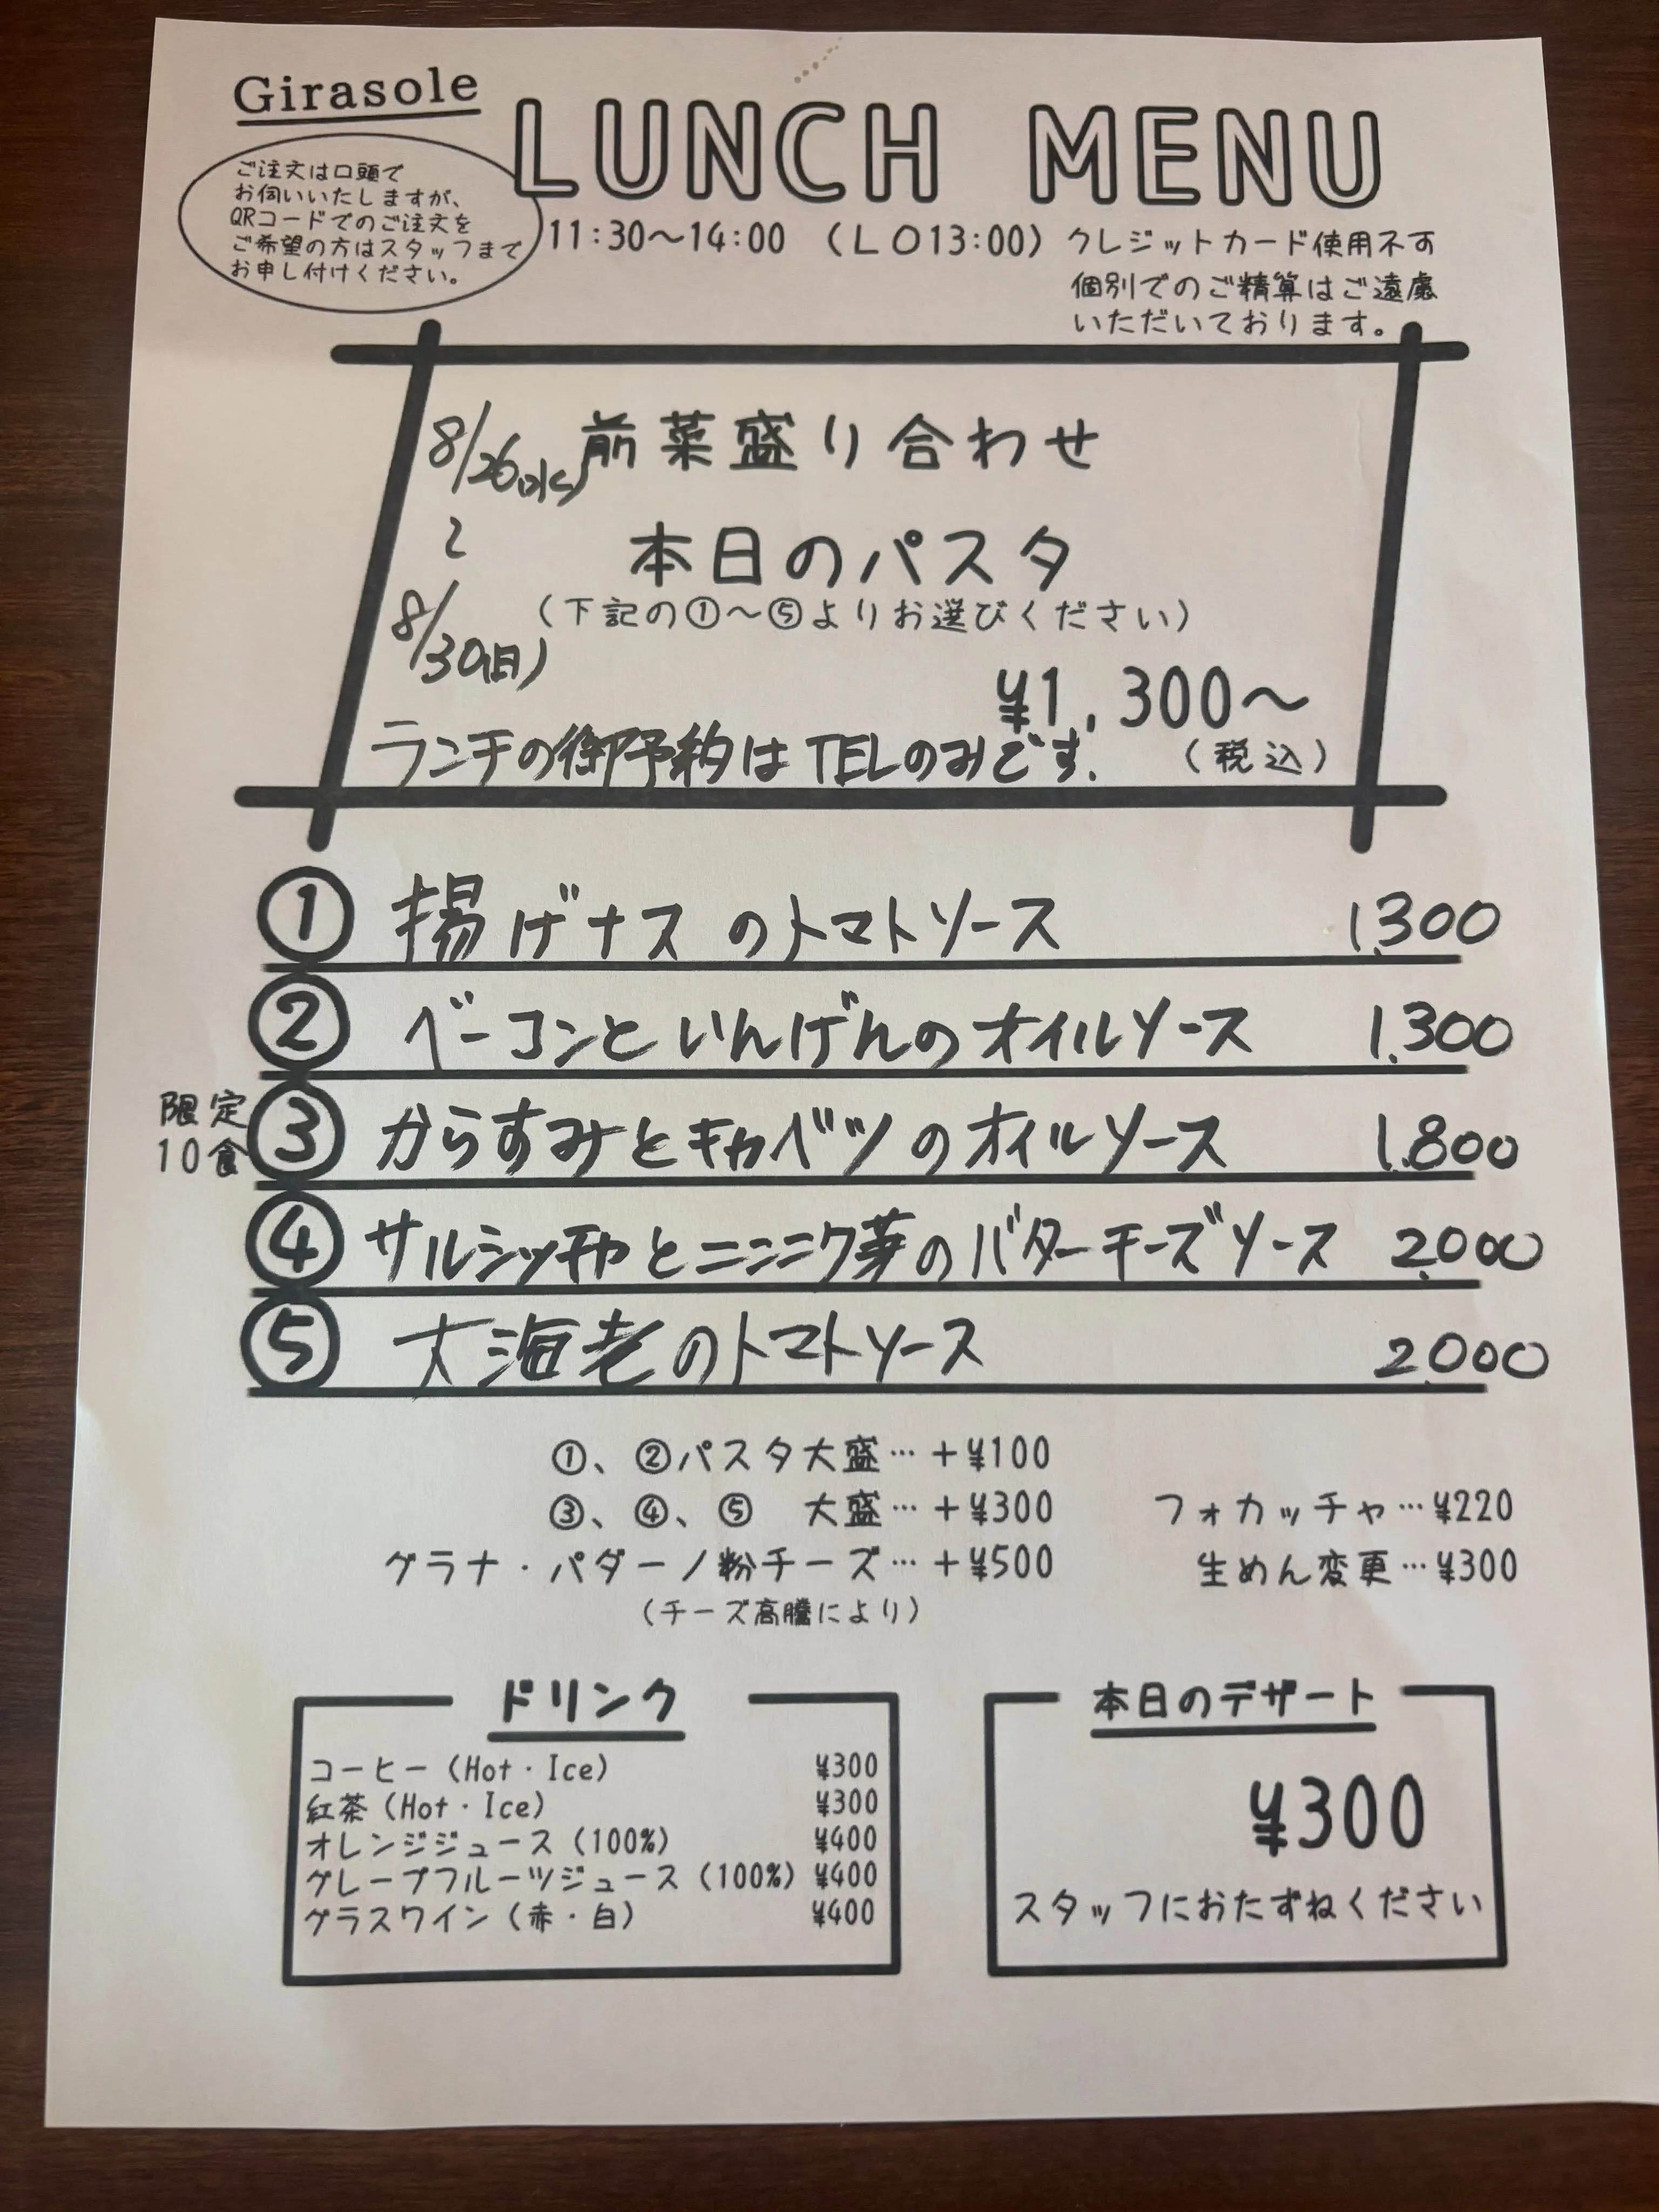 Girasole
LUNCH MENU
ご注文は口頭で
お伺いいたしますが、
QRコードでのご注文を
ご希望の方はスタッフまで
お申し付けください。
11:30〜14:00 (LO13:00) クレジットカード使用不可
個別でのご精算はご遠慮
いただいております。
8/26(水) 前菜盛り合わせ
〜
本日のパスタ
8/30(日)
(下記の①〜⑤よりお選びください)
¥1,300〜
ランチの御予約はTELのみです. (税込)
① 揚げナスのトマトソース 1.300
② ベーコンといんげんのオイルソース 1.300
限定
10食
③ からすみとキャベツのオイルソース 1.800
④ サルシッチャとニンニク芽のバターチーズソース 2.000
⑤ 大海老のトマトソース 2.000
①、②パスタ大盛…+¥100
③、④、⑤ 大盛…+¥300 フォカッチャ…¥220
グラナ・パダーノ粉チーズ…+¥500 生めん変更…¥300
(チーズ高騰により)
ドリンク
コーヒー(Hot・Ice) ¥300
紅茶(Hot・Ice) ¥300
オレンジジュース(100%) ¥400
グレープフルーツジュース(100%) ¥400
グラスワイン(赤・白) ¥400
本日のデザート
¥300
スタッフにおたずねください